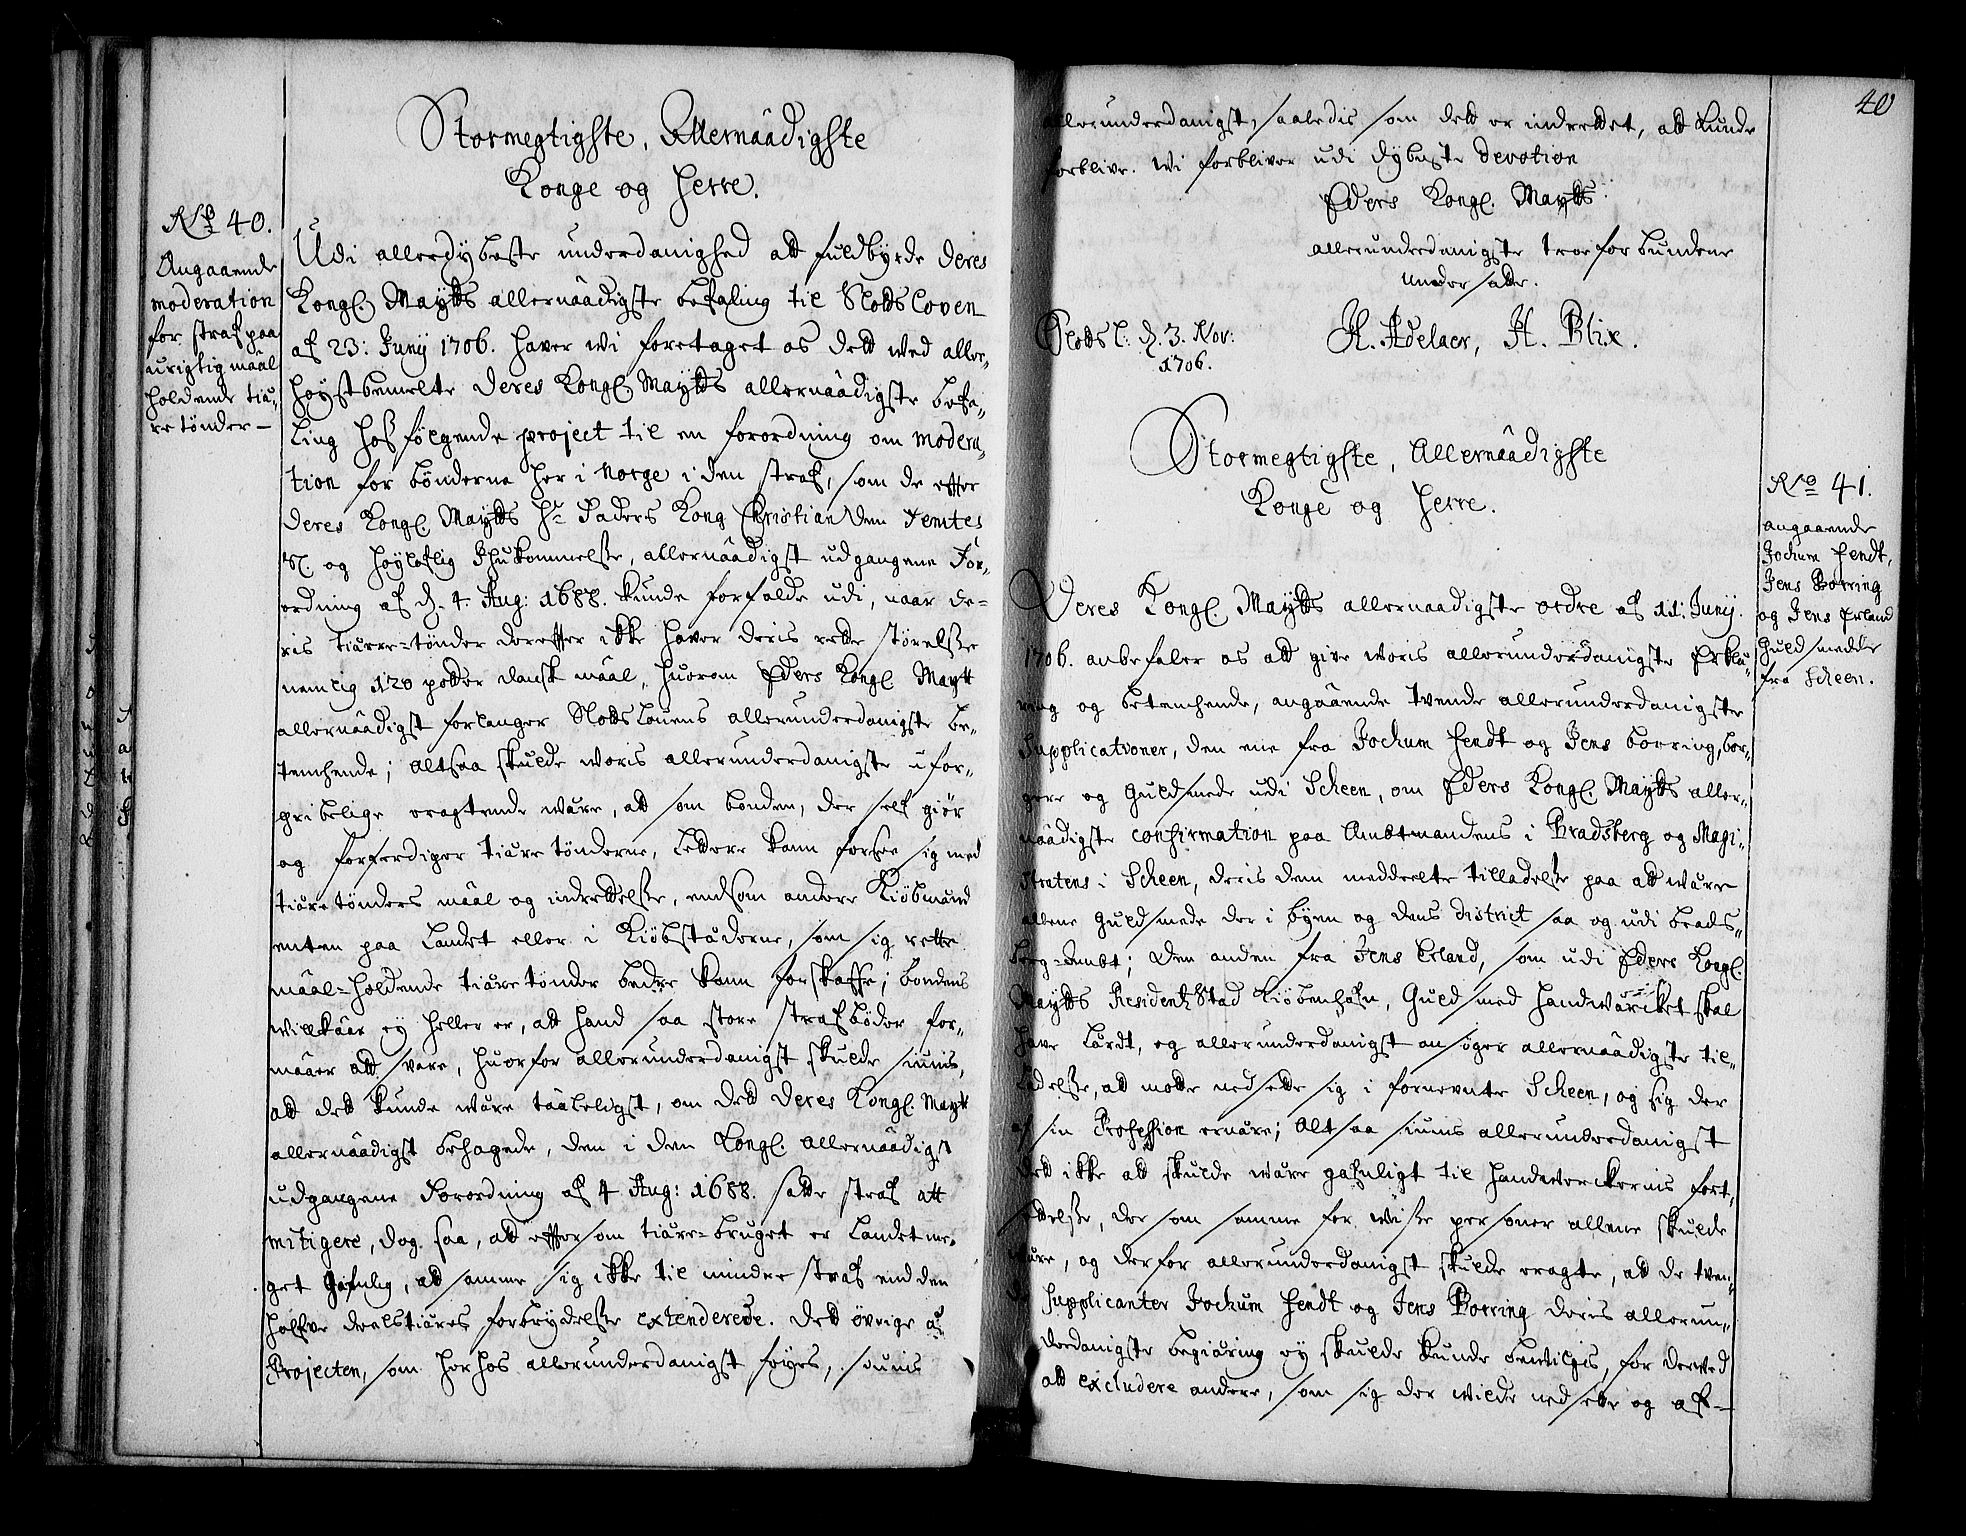 Stormegtigste, Allernåâdigste
Konge og Herre.
No 40.
Angaaende
moderation
for straf paa
urigtig maal
holdende tiæ,,
re tønder —
Udi allerdybeste underdanighed att fuldbyrde Deres
Kongl. Maytts allernåâdigste befaling til Slotsloven
af 23: Juny 1706. hafver wi foretaget os dett wed aller,,
høystbemelte Deres Kongl. Maytts allernåâdigste befa,,
ling hos følgende project til en forordning om modera,,
tion for bønderne her i Norge i den straf, som de effter
Deres Kongl. Maytts Hr. Faders Kong Christian dem Femtes
S. og høyloflig Ihukommelse, allernåâdigst udgangene For,,
ordning af d. 4. Aug: 1688. kunde forfalde udi, naar de=
ris tiære=tønder dereffter ikke hafver deris rette størelse
nemlig 120 potter dansk måâl, huorom Eders Kongl. Maytt
allernåâdigst forlanger Slotslovens allerunderdanigste be,,
tenchende; altsaa skulde woris allerunderdanigste ufor,,
gribelige eragtende wære, att som bonden, der self giør
og forferdiger tiære tønderne, lettere kann forsee sig med
tiæretønders måâl og indrettelse, end som andre Kiøbmænd
enten paa Landet eller i Kiøbstæderne, som sig rette
måâl=holdende tiære tønder bedre kann forskaffe; bondens
willkåår ey heller er, att hand saa store strafbøder for,,
måâer att svare, huorfor allerunderdanigst skulde siunis,
att dett kunde wære tåâleligst, om dett Deres Kongl. Maytt
allernåâdigst behagede, den i den Kongl. allernåâdigst
udgangene Forordning af 4 Aug: 1688. satte straf att
mitigere, dog saa, att effter som tiære=bruget er Landet me,,
get gafnlig, att samme sig ikke til mindre straf end den
halfve deelstiæres forbrydelse extenderede. Dett øvrige af
Projecten, som herhos allerunderdanigst føyes, siunis
40
allerunderdanigst, saaledis som dett er indrettet, att kunde
forblive. Wi forbliver udi dybeste devotion
Eders Kongl. Maytts
allerunderdanigste troeforbundene
undersatte.
Slotsl: d. 3. Nov:
1706.
H. Adelaer, H. Blix.
Stormegtigste, Allernåâdigste
Konge og Herre.
No 41.
angaaende
Jochum Hendt,
Jens Borring
og Jens Erland
Guldsmedde
fra Scheen.
Deres Kongl. Maytts allernaadigste ordre af 11. Juny.
1706. anbefaler os att give woris allerunderdanigste Erklæ,,
ring og betenchende, angåâende tvende allerunderdanigste
Supplicationer, den ene fra Jochum Hendt og Jens Borring, bor,,
gere og Guldsmede udi Scheen, om Eders Kongl. Maytts aller,,
nåâdigste confirmation paa Ambtmandens i Bradsberg og Magi,,
stratens i Scheen, deris dem meddeelte tilladelse paa att wære
allene Guldsmede der i byen og dens district saa og udi brads,,
berg=Ambt; Den anden fra Jens Erland, som udi Eders Kongl.
Maytts Residentz Stad Kiøbenhafn, Guldsmed handwærcket skal
have lærdt, og allerunderdanigst ansøger allernåâdigste til,,
ladelse, att motte nedsette sig i fornevnte Scheen, og sig der
af sin Profession ernære; Altsaa siunis allerunderdanigst
dett ikke att skulde wære gafnligt til handwerckernis fort,,
settelse, dersom samme for wisse personer allene skulde
wære, og derfor allerunderdanigst skulde eragte, att de tven,,
de Supplicanter Jochum Hendt og Jens Borring deris allerun,,
derdanigste begiæring ey skulde kunde bevilges, for derved
att excludere andere, som sig der wilde nedsette og af—